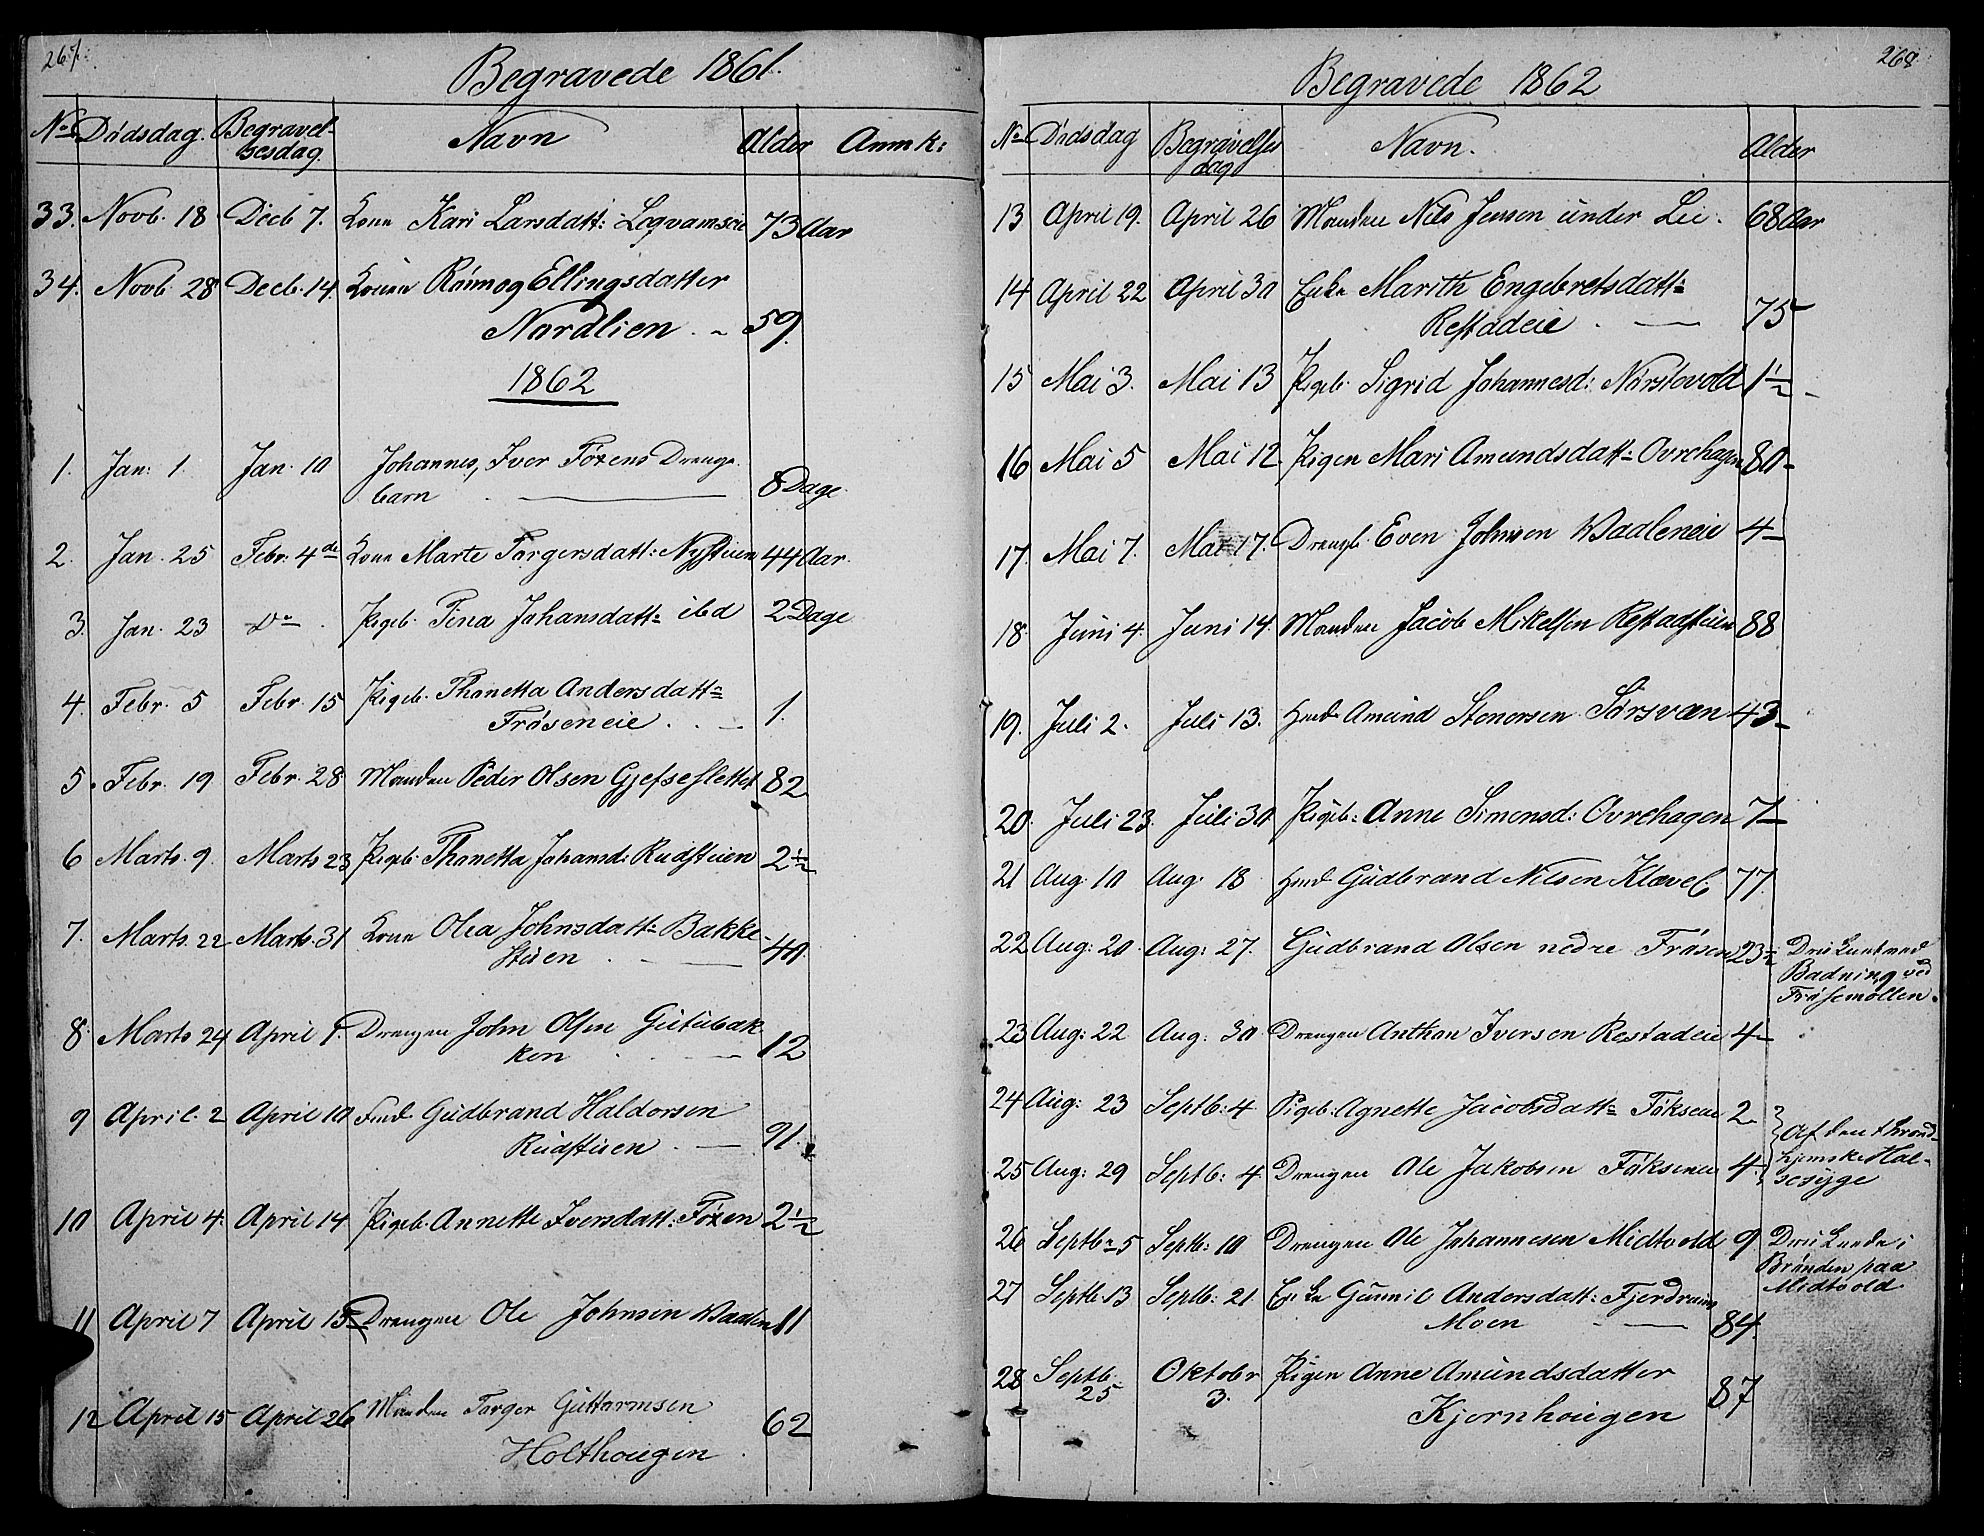 267.
Begravede 1861.
No Dødsdag. Begravel- Navn Alder Anmk:
sesdag.
33. Novb. 18 Decb 7. Kone Kari Larsdatt: Leqvamseie 73 Aar
34. Novb. 28 Decb. 14. Konen Rönnog Ellingsdatter
Nordlien . - 59.
1862
1. Jan: 1. Jan. 10 Johannes, Iver Foxens Drenge-
barn . 8 Dage.
2. Jan. 25 Febr. 4de Kone Marte Torgersdatt: Nystuen 44 Aar.
3. Jan. 23 Do . Pigeb. Tina Johansdatt= ibd 2 Dage
4. Febr. 5 Febr. 15 Pigeb. Thonetta Andersdatt=
Frøseneie . . - 1.
5. Febr. 19 Febr. 28 Manden Peder Olsen Gjefseslettet 82
6 Marts. 9. Marts 23 Pigeb: Thonetta Johansd: Rudstuen 2½
7. Marts. 22 Marts. 31 Kone Olea Johnsdatt= Bakke-
Stuen . - 40.
8. Marts 24 April 9. Drengen John Olsen Gutubak-
ken . - 12
9 April. 2 April 10 Gudbrand Haldorsen
Rudstuen . - 91.
10 April 4. April 14 Pigeb. Annette Iversdatt: Foxen 2½
11 April 7 April 15 Drengen Ole Johnsen Vaalen 11
12 April 15 April 26 Manden Torger Guttormsen
Holthougen . 62
268.
Begravede 1862
No Dødsdag Begravelses Navn. Alder
dag
13 April 19. April 26 Manden Nils Jensen under Lee . 68 Aar
14 April 22 April 30 Enke Marith Engebretsdatt=
Restadeie . - 75
15 Mai 3. Mai 13 Pigeb. Sigrid Johannesd: Nørstevold 1½ -
16 Mai 5 Mai 12 Pigen Mari Amundsdatt: Ovrehagen 80 -
17. Mai 7. Mai 17. Drengb. Even Johnsen Vaaleneie 4 -
18. Juni 4. Juni 14. Manden Jacob Mikelsen Restadstuen 88
19. Juli 2. Juli 13. Amund Stenersen Sørsvæn 43 -
20. Juli 23. Juli 30 Pigeb: Anne Simensd: Ovrehagen 7 -
21 Aug. 10 Aug. 18 Gudbrand Nilsen Kløvel 77
22 Aug: 20 Aug: 27. Gudbrand Olsen nedre Frøsen 23½ Druknet ved
Badning ved
Frøsemøllen.
23 Aug: 22 Aug. 30 Drengen Anthon Iversen Restadeie 4 -
24 Aug: 23 Septb: 4 Pigeb: Agnette Jacobsdatt= Foksene 2
} Af den thrond-
25 Aug: 29 Septb: 4. Drengen Ole Jakobsen Foksene 4. hjemske Hal-
sesyge
26 Septbr 5 Septb: 10 Drengen Ole Johannesen Midtvold 9 Druknede i
Brønden paa
27 Septb. 13 Septb: 21 Enke Gunnil Andersdatt: Fjerdrum Midtvold
Moen - 84.
28 Septb. Oktobr Pigen Anne Amundsdatter
25 3. Kjernhougen 87